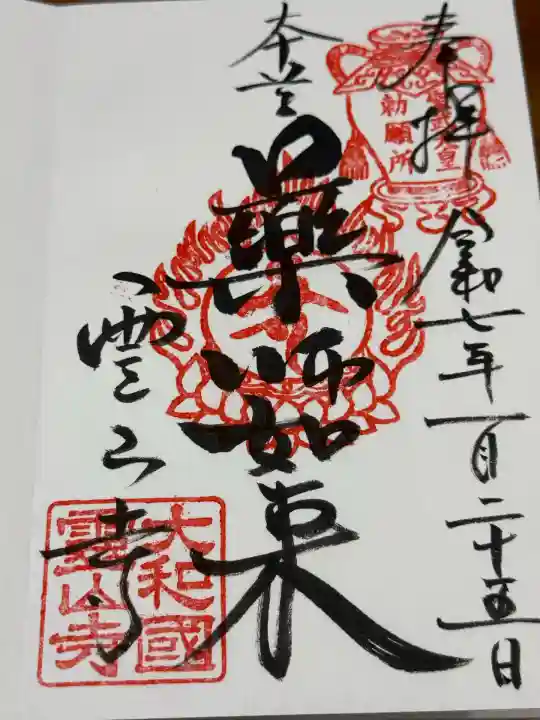 奉拝
令和七年一月二十五日
聖武天皇
勅願所
本尊
薬師如来
霊山寺
大和國
霊山寺